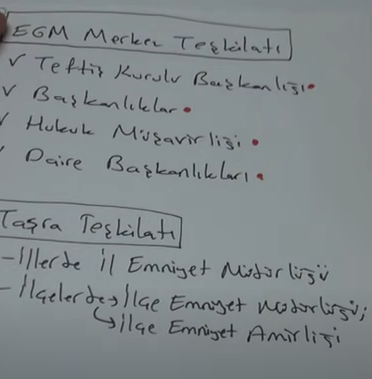 EGM Merkez Teşkilatı
✓ Teftiş Kurulu Başkanlığı •
✓ Başkanlıklar •
✓ Hukuk Müşavirliği •
✓ Daire Başkanlıkları •
Taşra Teşkilatı
- İllerde İl Emniyet Müdürlüğü
- İlçelerde → İlçe Emniyet Müdürlüğü;
↳ İlçe Emniyet Amirliği